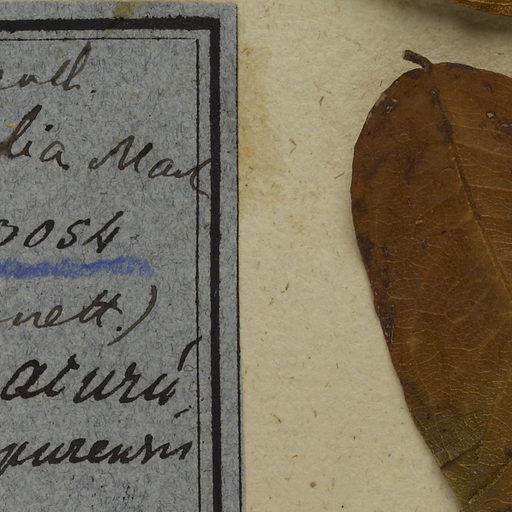 lia Mart
0054
nett.)
acurú
purensis